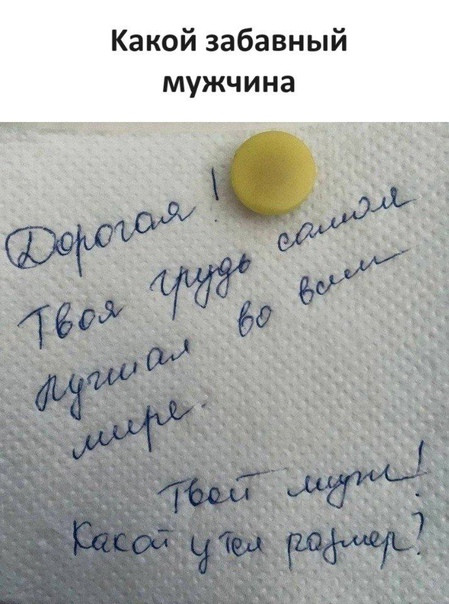 Какой забавный
мужчина
Дорогая!
Твоя грудь самая
лучшая во всем
мире.
Твой муж!
Какой у тея размер?